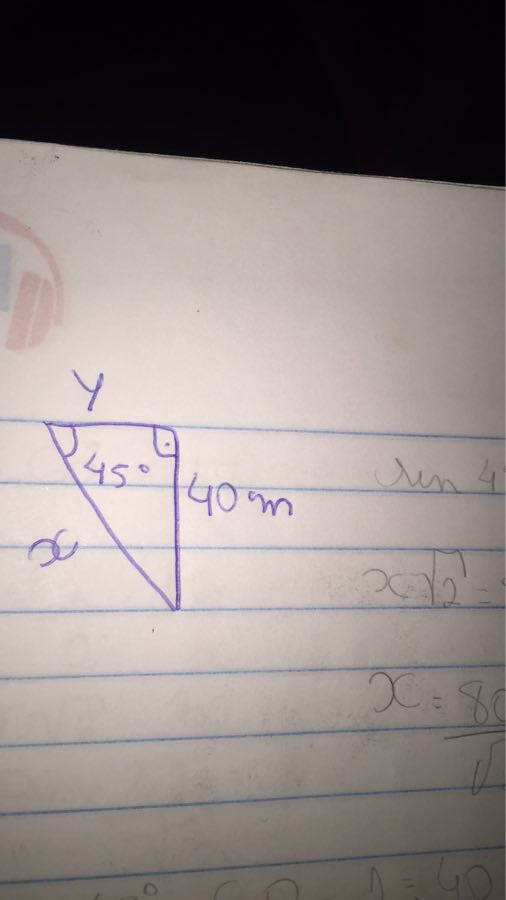 y
45°
40m
x
sen 4
x√2 =
x = 80
√
1 = 40